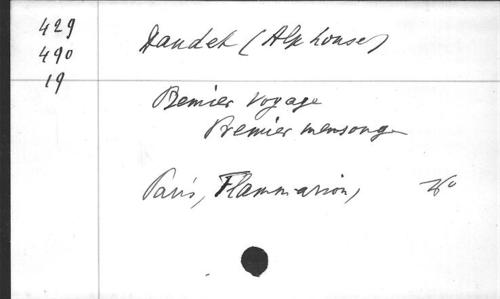 429
490
19
Daudet (Alphonse)
Premier voyage
Premier mensonge
Paris, Flammarion,